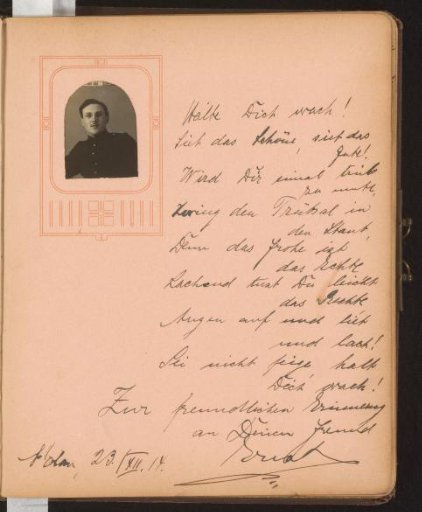 Halte Dich wach!
Sieh das Schöne, sieh das
Gute!
Wird Dir einmal trüb
zu mute,
Zwing den Trübsal in
den Staub,
Denn das Frohe ist
das Echte
Lachend tust Du leicht
das Rechte
Augen auf und
und lach!
Sei nicht feige halt
Dich wach!
Zur freundlichen Erinnerung
an Deinen Freund
Ernst
23. XII. 14.